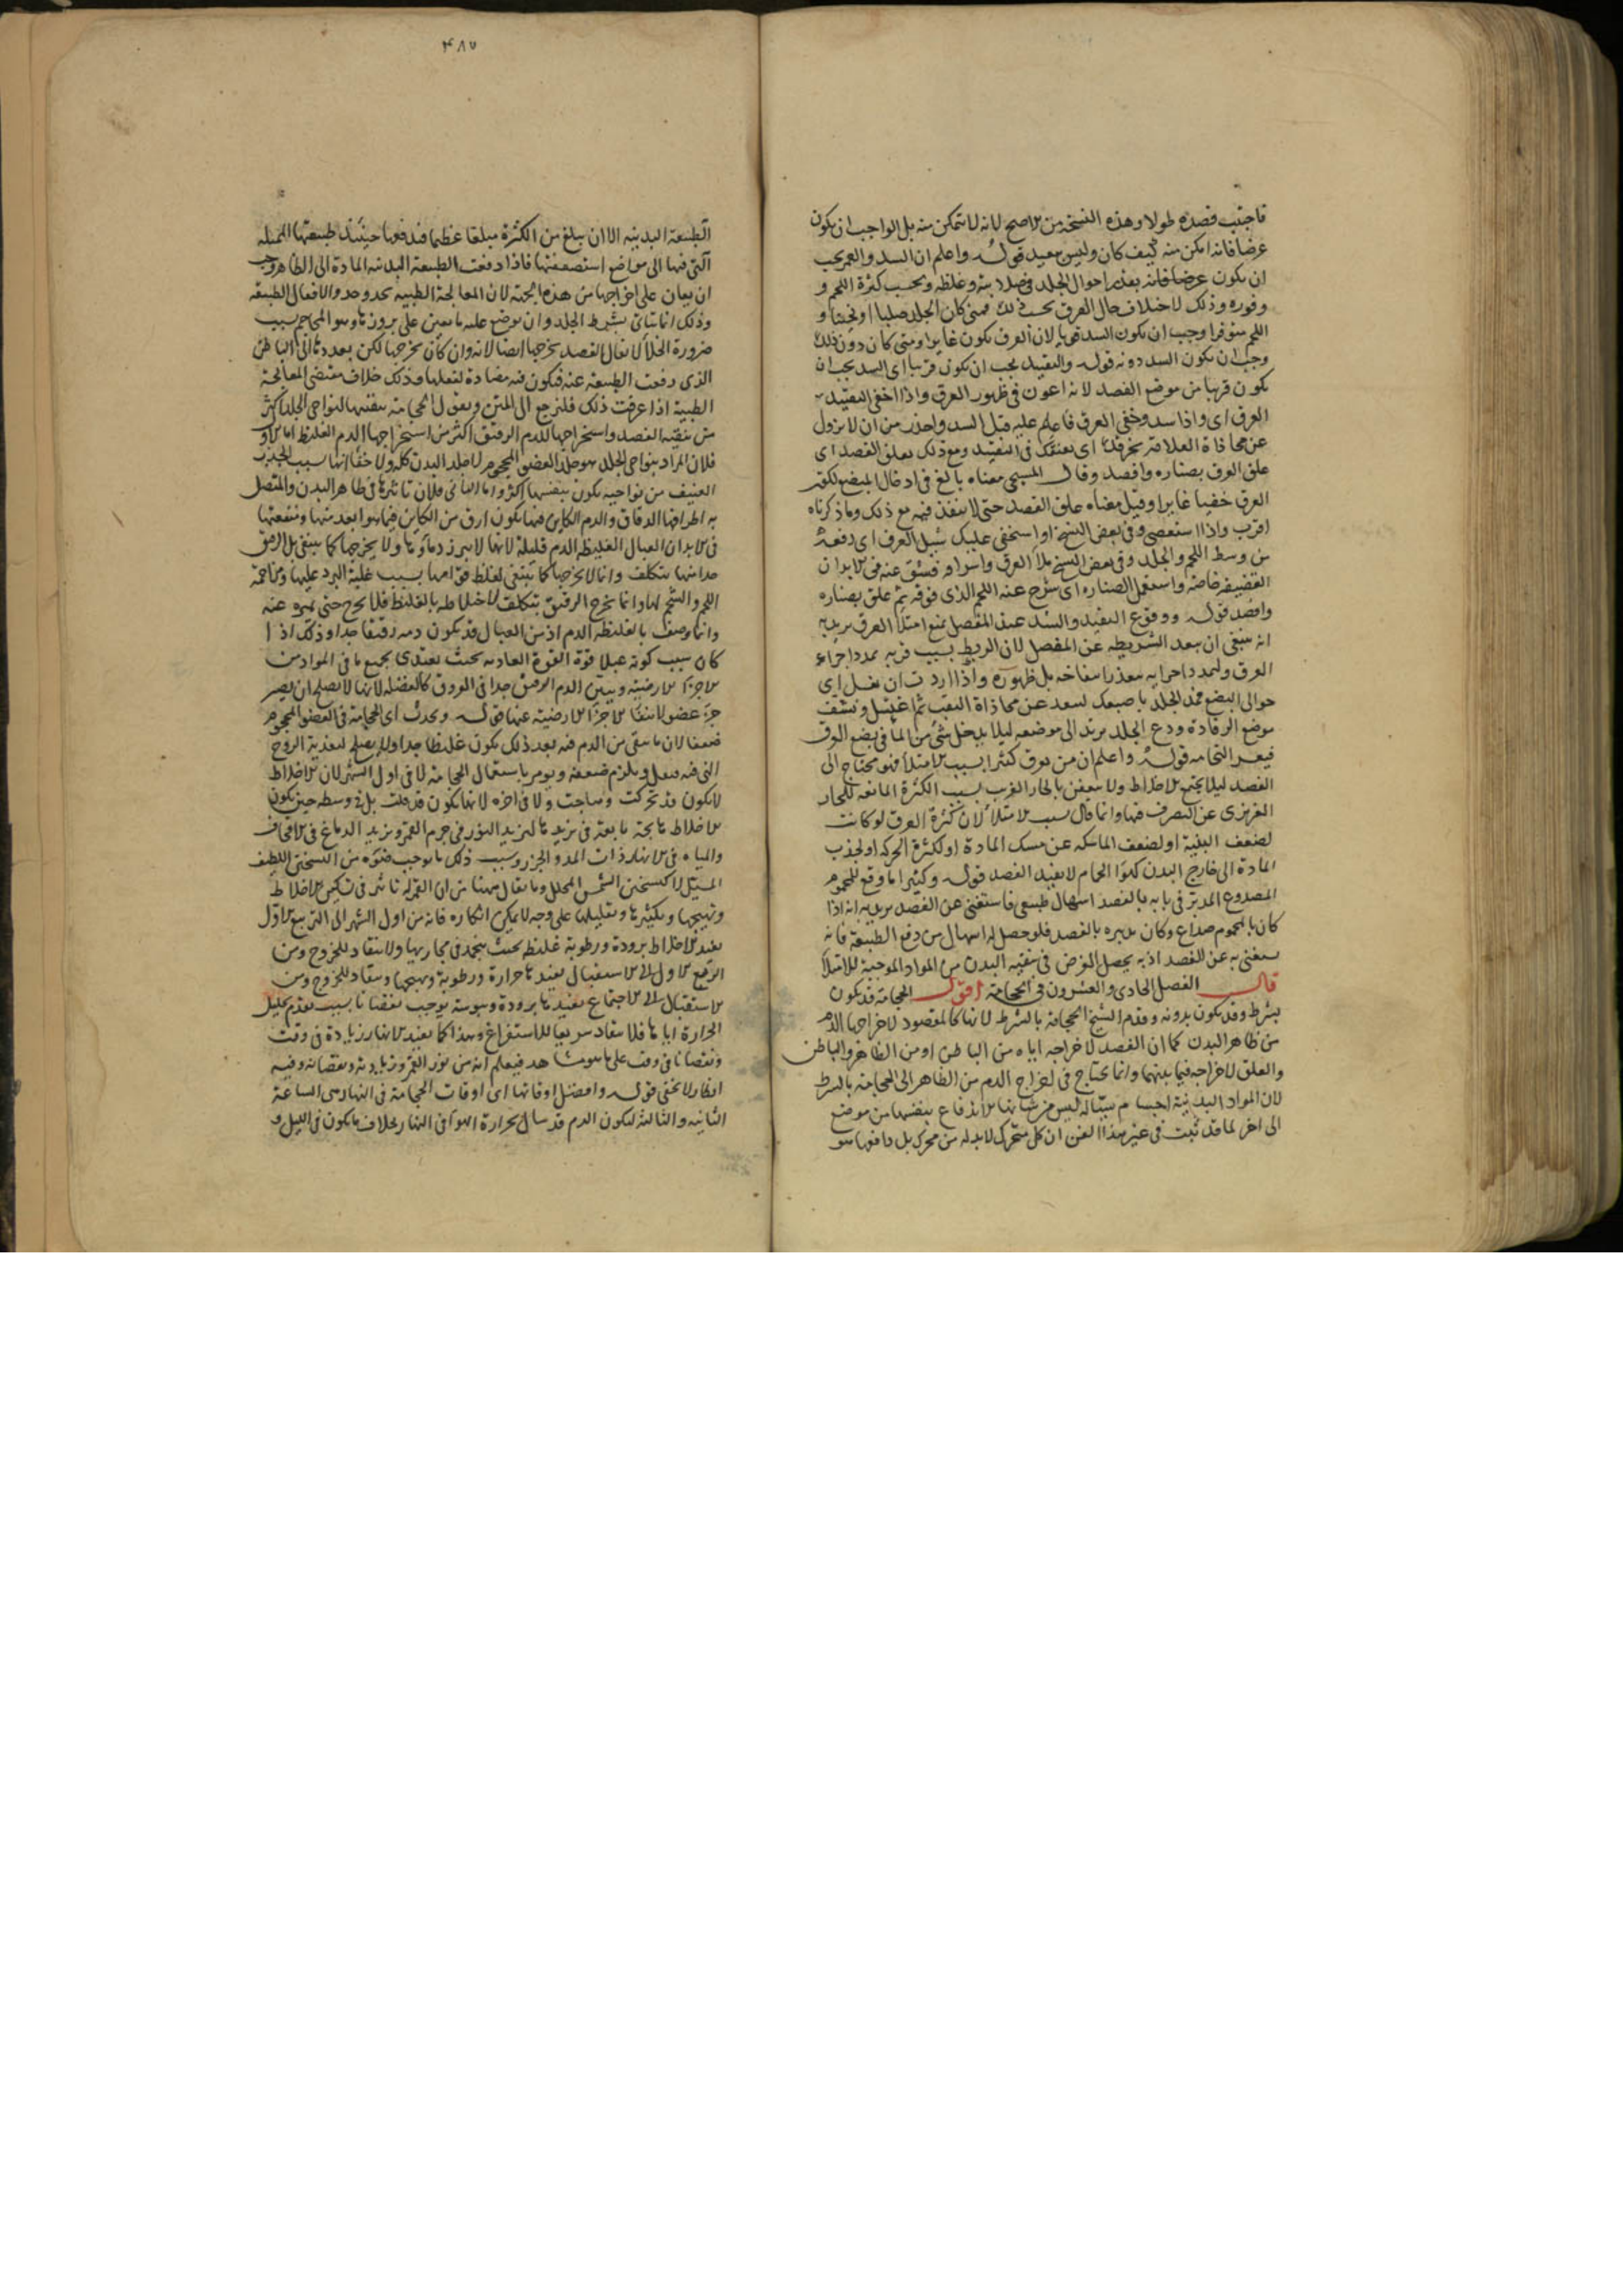 فاجتنب فصده طولا وهذه النسخة من الاصح لانه لا يتمكن منه بل الواجب ان يكون
عرضا فانه امكن منه كيف كان وليس ببعيد قوله واعلم ان الشد والغمز يجب
ان يكون عرضا فانه بقدر احوال الجلد في صلابته وغلظه وبحسب كثرة اللحم و
وفوره وذلك لاختلاف حال العرق بحسب ذلك فمتى كان الجلد صلبا او ثخينا و
اللحم متوفرا وجب ان يكون الشد قويا لان العرق يكون غايرا ومتى كان دون ذلك
وجب ان يكون الشد دونه قوله والتقييد يجب ان يكون قريبا اى الشد يجب ان
يكون قريبا من موضع الفصد لانه اعون فى ظهور العرق واذا اخفى التقييد
العرق اى واذا شد وخفى العرق فاعلم عليه قبل الشد واحذر من ان لا يزول
عن محاذاة العلامة بحركتك اى بعنفك فى التقييد ومع ذلك فعلق الفصد اى
علق العرق بصناره وافصد وقال المسيحى معناه بالغ فى ادخال المبضع لكون
العرق خفيا غايرا وقيل معناه علق الفصد حتى لا ينفذ فيه مع ذلك وما ذكرناه
اقرب واذا استعصى وفى بعض النسخ او استخفى عليك شيل العرق اى رفعه
من وسط اللحم والجلد وفى بعض النسخ ملأ العرق واسواه فشق عنه فى الابدان
القضيفة خاصة واستعمل الصناره اى شرح عنه اللحم الذى فوقه ثم علق بصناره
وافصد قوله ووقوع التقييد والشد عند المفصل يمنع امتلأ العرق يريد به
انه ينبغى ان يبعد الشريطه عن المفصل لان الربط بسبب قربه يمدد اجزاء
العرق ولتمدد اجزايه يتعذر انتفاخه بل ظهوره واذا اردت ان تغسل اى
حوالى المبضع فمد الجلد باصبعك لتبعد عن محاذاة الثقب ثم اغتسل ونشف
موضع الرفادة ودع الجلد يرتد الى موضعه ليلا يدخل شئ من المآ فى بضع العرق
فيعسر التحامه قوله واعلم ان من يعرق كثيرا بسبب الامتلأ فهو محتاج الى
الفصد ليلا يجتمع الاخلاط ولا يتعفن بالحار الغريب بسبب الكثرة المانعه للحار
الغريزى عن التصرف فيها وانما قال بسبب الامتلأ لان كثرة العرق لو كانت
لضعف البنية او لضعف الماسكه عن مسك المادة او لكثرة الحركه او لجذب
المادة الى خارج البدن كهوآ الحمام لا يفيد الفصد قوله وكثيرا ما وقع للمحموم
المصدوع المدبر فى بابه بالفصد اسهال طبيعى فاستغنى عن الفصد يريد به انه اذا
كان بالمحموم صداع وكان تدبيره بالفصد فلو حصل له اسهال من دفع الطبيعة فانه
يستغنى به عن الفصد اذ به يحصل الغرض فى تنقيه البدن من المواد الموجبة للامتلأ
قال الفصل الحادى والعشرون فى الحجامة اقول الحجامة قد يكون
بشرط وقد يكون بدونه وقدم الشيخ الحجامة بالشرط لانها كالمقصود لاخراجها الدم
من ظاهر البدن كما ان الفصد لاخراجه اياه من الباطن او من الظاهر والباطن
والعلق لاخراجه فيما بينهما وانما يحتاج فى اخراج الدم من الظاهر الى الحجامة بالشرط
لان المواد البدنية اجسام سياله ليس من شانها الاندفاع بنفسها من موضع
الى اخر لما قد ثبت فى غير هذا الفن ان كل متحرك لابد له من محرك بل دافعها هو
۴۸۷
الطبيعة البدنيه الا ان يبلغ من الكثرة مبلغا عظيما فيدفعها حينئذ طبيعتها الميله
التى فيها الى مواضع استضعفتها فاذا دفعت الطبيعة البدنيه المادة الى الظاهر وجب
ان يعان على اخراجها من هذه الجهة لان المعالجة الطبيه تحذو حذو الافعال الطبيعه
وذلك انما يتأتى بشرط الجلد وان يوضع عليه ما يعين على بروزها وهو المحاجم بسبب
ضرورة الخلأ لا يقال الفصد يخرجها ايضا لانه وان كان يخرجها لكن بعد ردها الى الباطن
الذى دفعت الطبيعة عنه فيكون فيه مضادة لفعلها وذلك خلاف مقتضى المعالجة
الطبية اذا عرفت ذلك فلنرجع الى المتن ونقول الحجامة تنقيتها لنواحى الجلد اكثر
من تنقيه الفصد واستخراجها للدم الرقيق اكثر من استخراجها الدم الغليظ اما الاول
فلان المراد بنواحى الجلد هو جلد العضو المحجوم لا جلد البدن كله ولا خفآ انها بسبب الجذب
العنيف من نواحيه يكون تنقيتها اكثر واما الثانى فلان تاثيرها فى ظاهر البدن والمتصل
به اطرافها الدقاق والدم الكاين فيها يكون ارق من الكاين فيما هو ابعد منها ومنفعتها
فى الابدان العبال الغليظه الدم قليلة لانها لا تبرز دمآوها ولا يخرجها كما ينبغى بل الرقيق
جدا منها بتكلف وانما لا يخرجها كما ينبغى لغلظ قوامها بسبب غلبة البرد عليها ومزاحمة
اللحم والشحم لها وانما يخرج الرقيق بتكلف لاختلاطه بالغليظ فلا يخرج حتى يميزه عنه
وانما وصف بالغليظه الدم اذ من العبال قد يكون دمه رقيقا جدا وذلك اذا
كان سبب كونه عبلا قوة القوة الغاذيه بحيث يغتذى بجميع ما فى المواد من
الاجزآ الارضية ويبقى الدم الرقيق جدا فى العروق كالفضله لانها لا يصلح ان يصير
جزء عضو لانتفآ الاجزآ الارضية عنها قوله ويحدث اى الحجامة فى العضو المحجوم
ضعفا لان ما يبقى من الدم فيه بعد ذلك يكون غليظا جدا ولا يصلح لتغذية الروح
التى فيه فيقل ويلزم ضعفه ويومر باستعمال الحجامة لا فى اول الشهر لان الاخلاط
لا يكون قد تحركت وهاجت ولا فى اخره لانها يكون قد قلت بل فى وسطه حين يكون
الاخلاط هائجة تابعة فى تزيدها لتزيد النور فى جرم القمر وتزيد الدماغ فى الاقحاف
والمياه فى الانهار ذات المد والجزر وسبب ذلك ما يوجب ضوءه من التسخين اللطيف
المسيل لا كتسخين الشمس المحلل وما يقال ههنا من ان القمر له تاثير فى تسكين الاخلاط
وتهييجها وتكثيرها وتقليلها على وجه لا يمكن انكاره فانه من اول الشهر الى التربيع الاول
يفيد الاخلاط برودة ورطوبة غليظه بحيث ينجمد فى مجاريها ولا ينقاد للخروج ومن
التربيع الاول الى الاستقبال يفيدها حرارة ورطوبة ويهيجها وينقاد للخروج ومن
الاستقبال الى الاجتماع يفيدها برودة ويبوسة يوجب نقصانا بسبب تقدم تحليل
الحرارة اياها فلا ينقاد سريعا للاستفراغ وهذا كما يفيد الانهار زيادة فى وقت
ونقصانا فى وقت على ما هو مشاهد فيعلم انه من نور القمر وزيادته ونقصانه وفيه
انظار لا يخفى قوله وافضل اوقاتها اى اوقات الحجامة فى النهار هى الساعة
الثانيه والثالثه لتكون الدم قد سال بحرارة الهوآ فى النهار بخلاف ما يكون فى الليل و